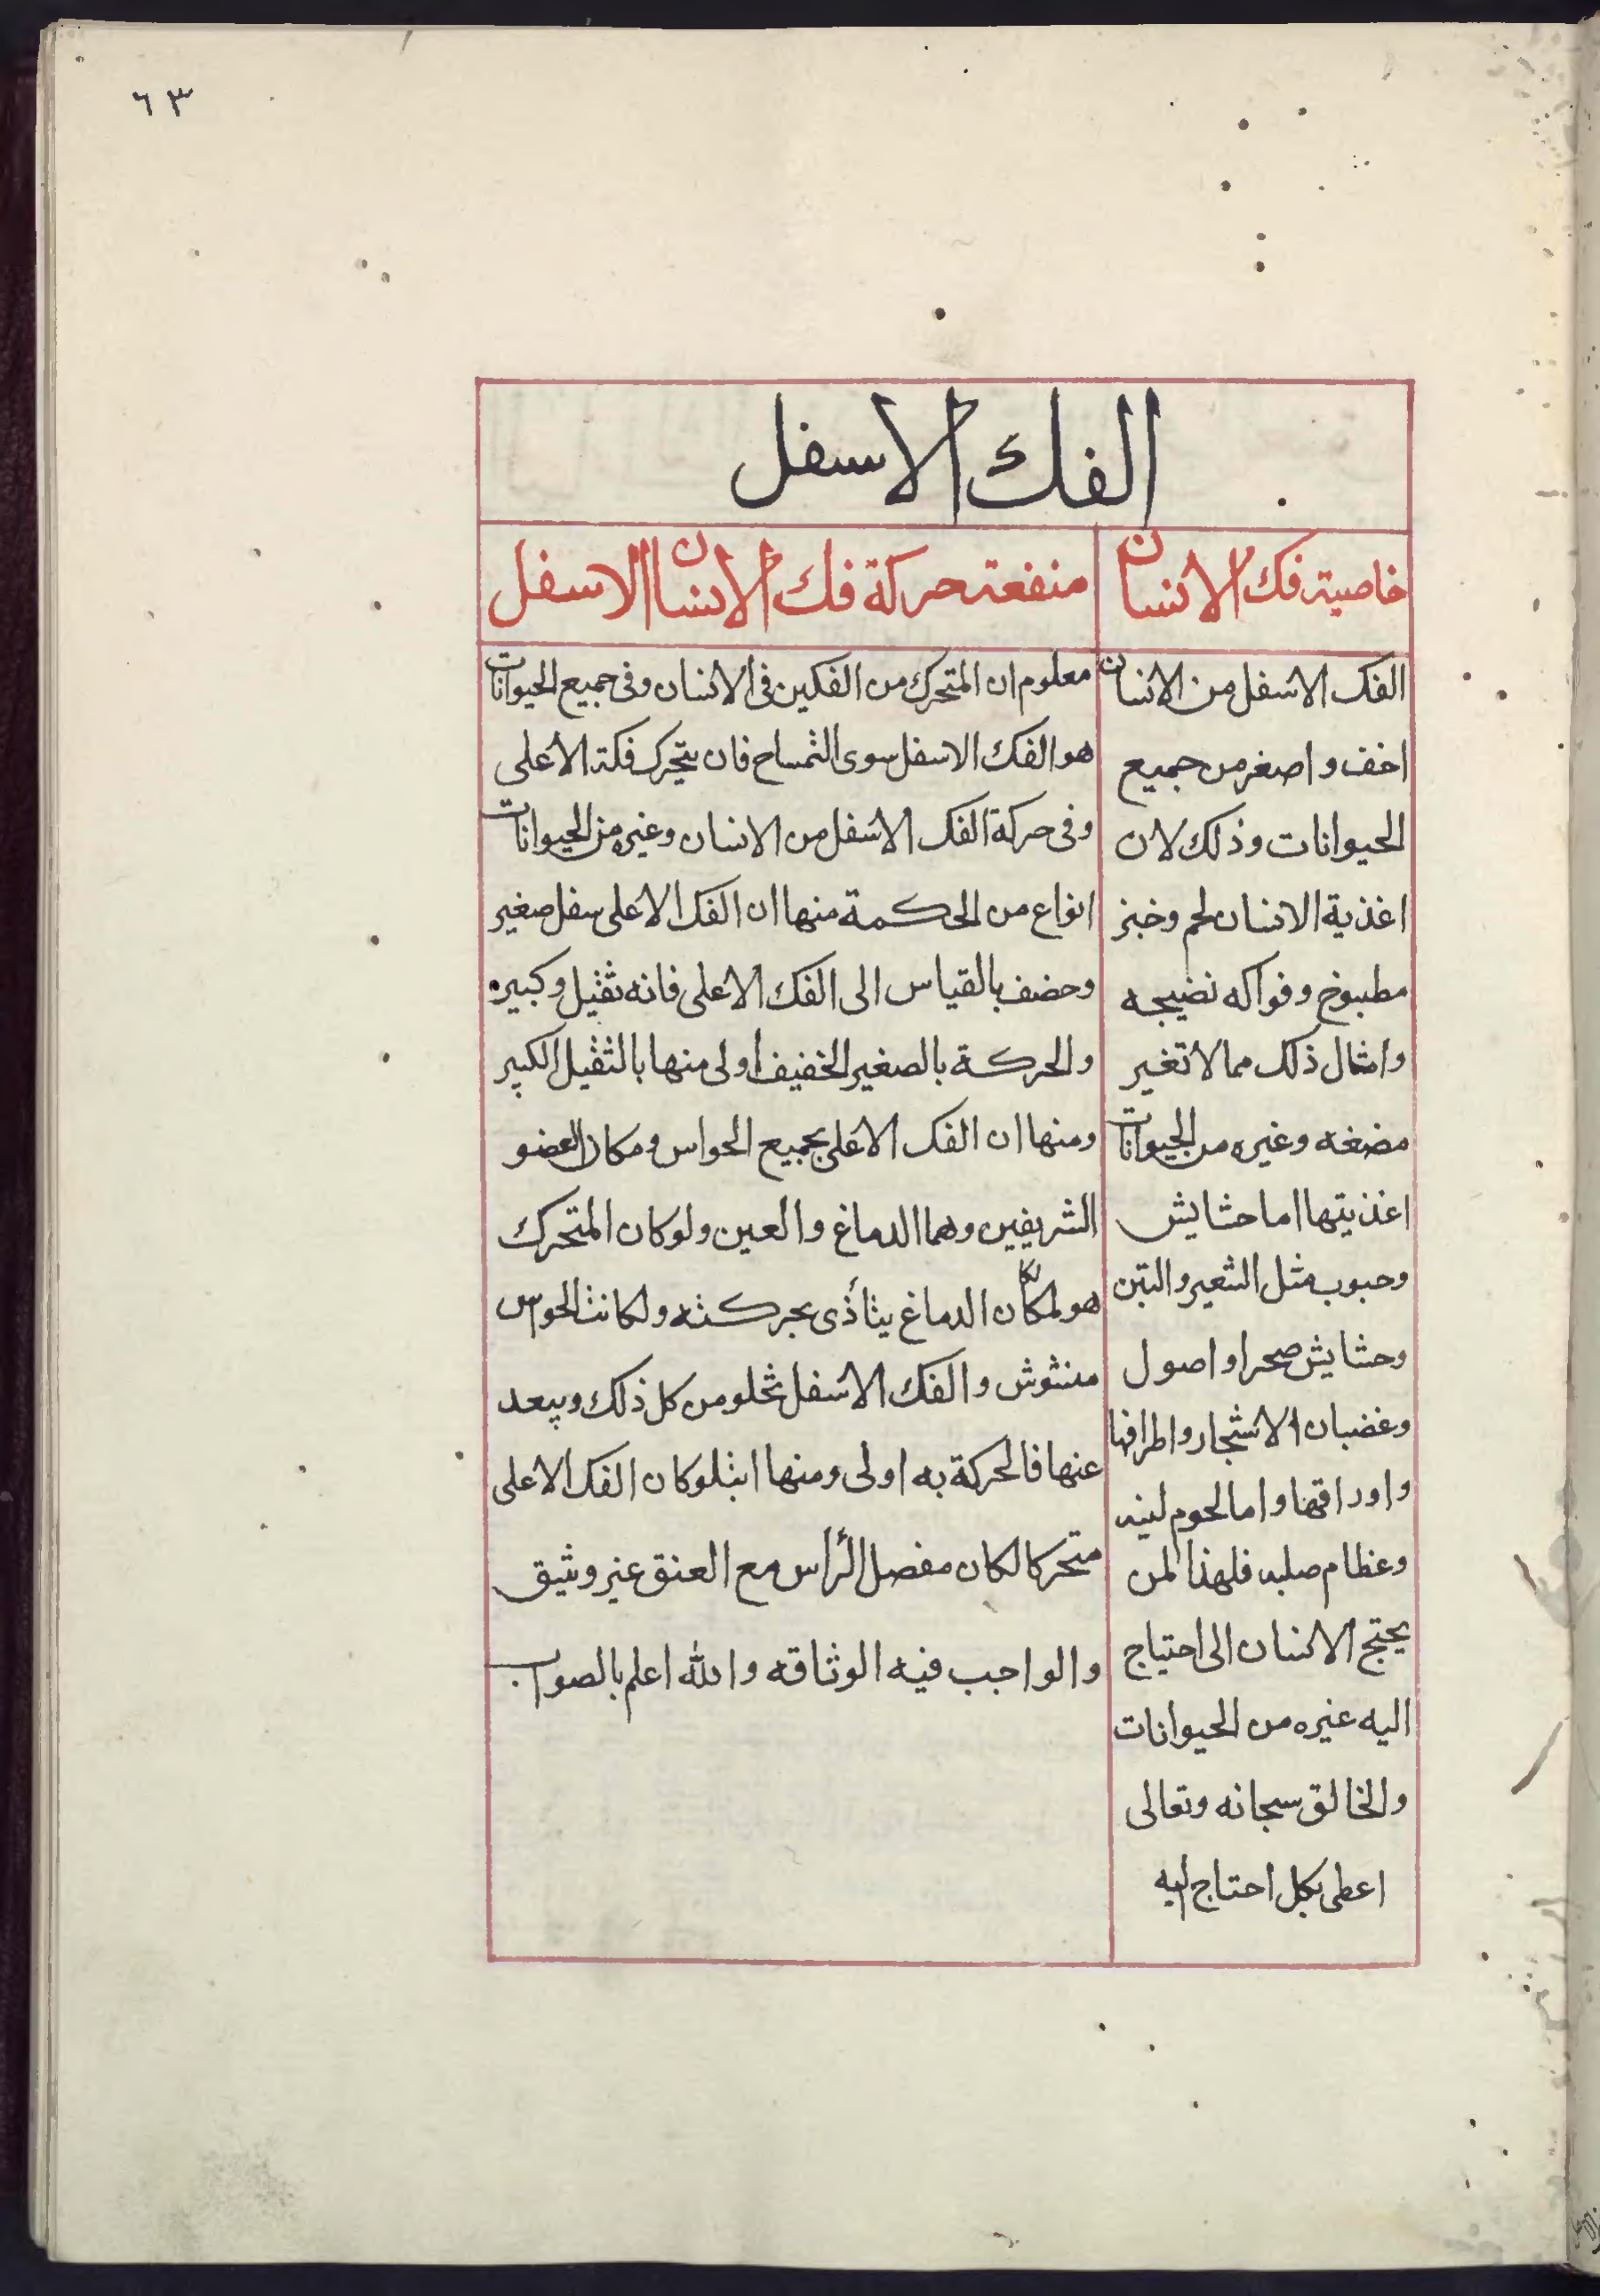 ٦٣
الفك الاسفل
خاصية فك الانسان
الفك الاسفل من الانسان
اخف واصغر من جميع
الحيوانات وذلك لان
اغذية الانسان لحم وخبز
مطبوخ وفواكه نضيجه
وامثال ذلك مما لا تغير
مضغه وغيره من الحيوانات
اغذيتها اما حشايش
وحبوب مثل الشعير والتبن
وحشايش صحرا واصول
وغضبان الاشجار واطرافها
واوراقها واما لحوم لينه
وعظام صلبه فلهذا لمن
يحتج الانسان الى احتياج
اليه غيره من الحيوانات
والخالق سبحانه وتعالى
اعطى بكل احتاج ليه
منفعة حركة فك الانسان الاسفل
معلوم ان المتحرك من الفكين فى الانسان وفى جميع الحيوانات
هو الفك الاسفل سوى التمساح فان يتحرك فكه الأعلى
وفى حركة الفك الاسفل من الانسان وغيره من الحيوانات
انواع من الحكمة منها ان الفك الاعلى سفل صغير
وحضف بالقياس الى الفك الاعلى فانه ثقيل وكبيره
والحركة بالصغير الخفيف اولى منها بالثقيل الكبير
ومنها ان الفك الاعلى بجميع الحواس ومكان العضو
الشريفين وهما الدماغ والعين ولو كان المتحرك
هو لمكان الدماغ يتأذى بحركته ولكانت الحواس
منشوش والفك الاسفل تخلو من كل ذلك ويبعد
عنها فالحركة به اولى ومنها ابثلو كان الفك الاعلى
متحركا لكان مفصل الرأس مع العنق غير وثيق
والواجب فيه الوثاقه والله اعلم بالصواب